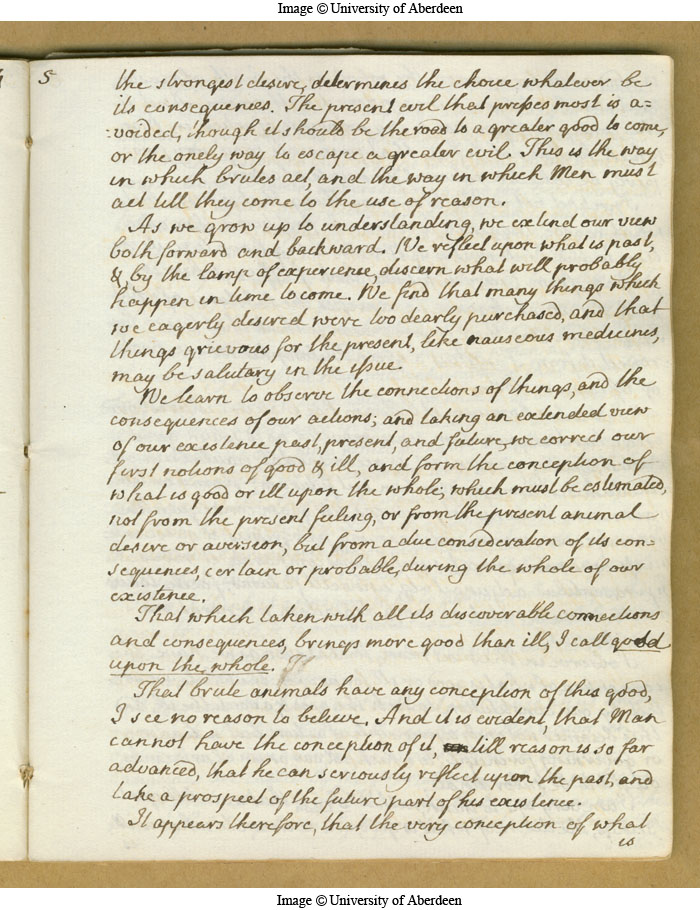 Image © University of Aberdeen
5
the strongest desire, determines the choice whatever be
its consequences. The present evil that presses most is a=
=voided, though it should be the road to a greater good to come,
or the onely way to escape a greater evil. This is the way
in which brutes act, and the way in which Men must
act till they come to the use of reason.
As we grow up to understanding, we extend our view
both forward and backward. We reflect upon what is past,
&, by the lamp of experience, discern what will probably
happen in time to come. We find that many things which
we eagerly desired were too dearly purchased, and that
things grievous for the present, like nauseous medicines,
may be salutary in the issue.
We learn to observe the connections of things, and the
consequences of our actions; and taking an extended view
of our existence past, present, and future, we correct our
first notions of good & ill, and form the conception of
what is good or ill upon the whole; which must be estimated,
not from the present feeling, or from the present animal
desire or aversion, but from a due consideration of its con=
sequences, certain or probable, during the whole of our
existence.
That which taken with all its discoverable connections
and consequences, brings more good than ill, I call good
upon the whole.
That brute animals have any conception of this good,
I see no reason to believe. And it is evident, that Man
cannot have the conception of it, till reason is so far
advanced, that he can seriously reflect upon the past, and
take a prospect of the future part of his existence.
It appears therefore, that the very conception of what
is
Image © University of Aberdeen